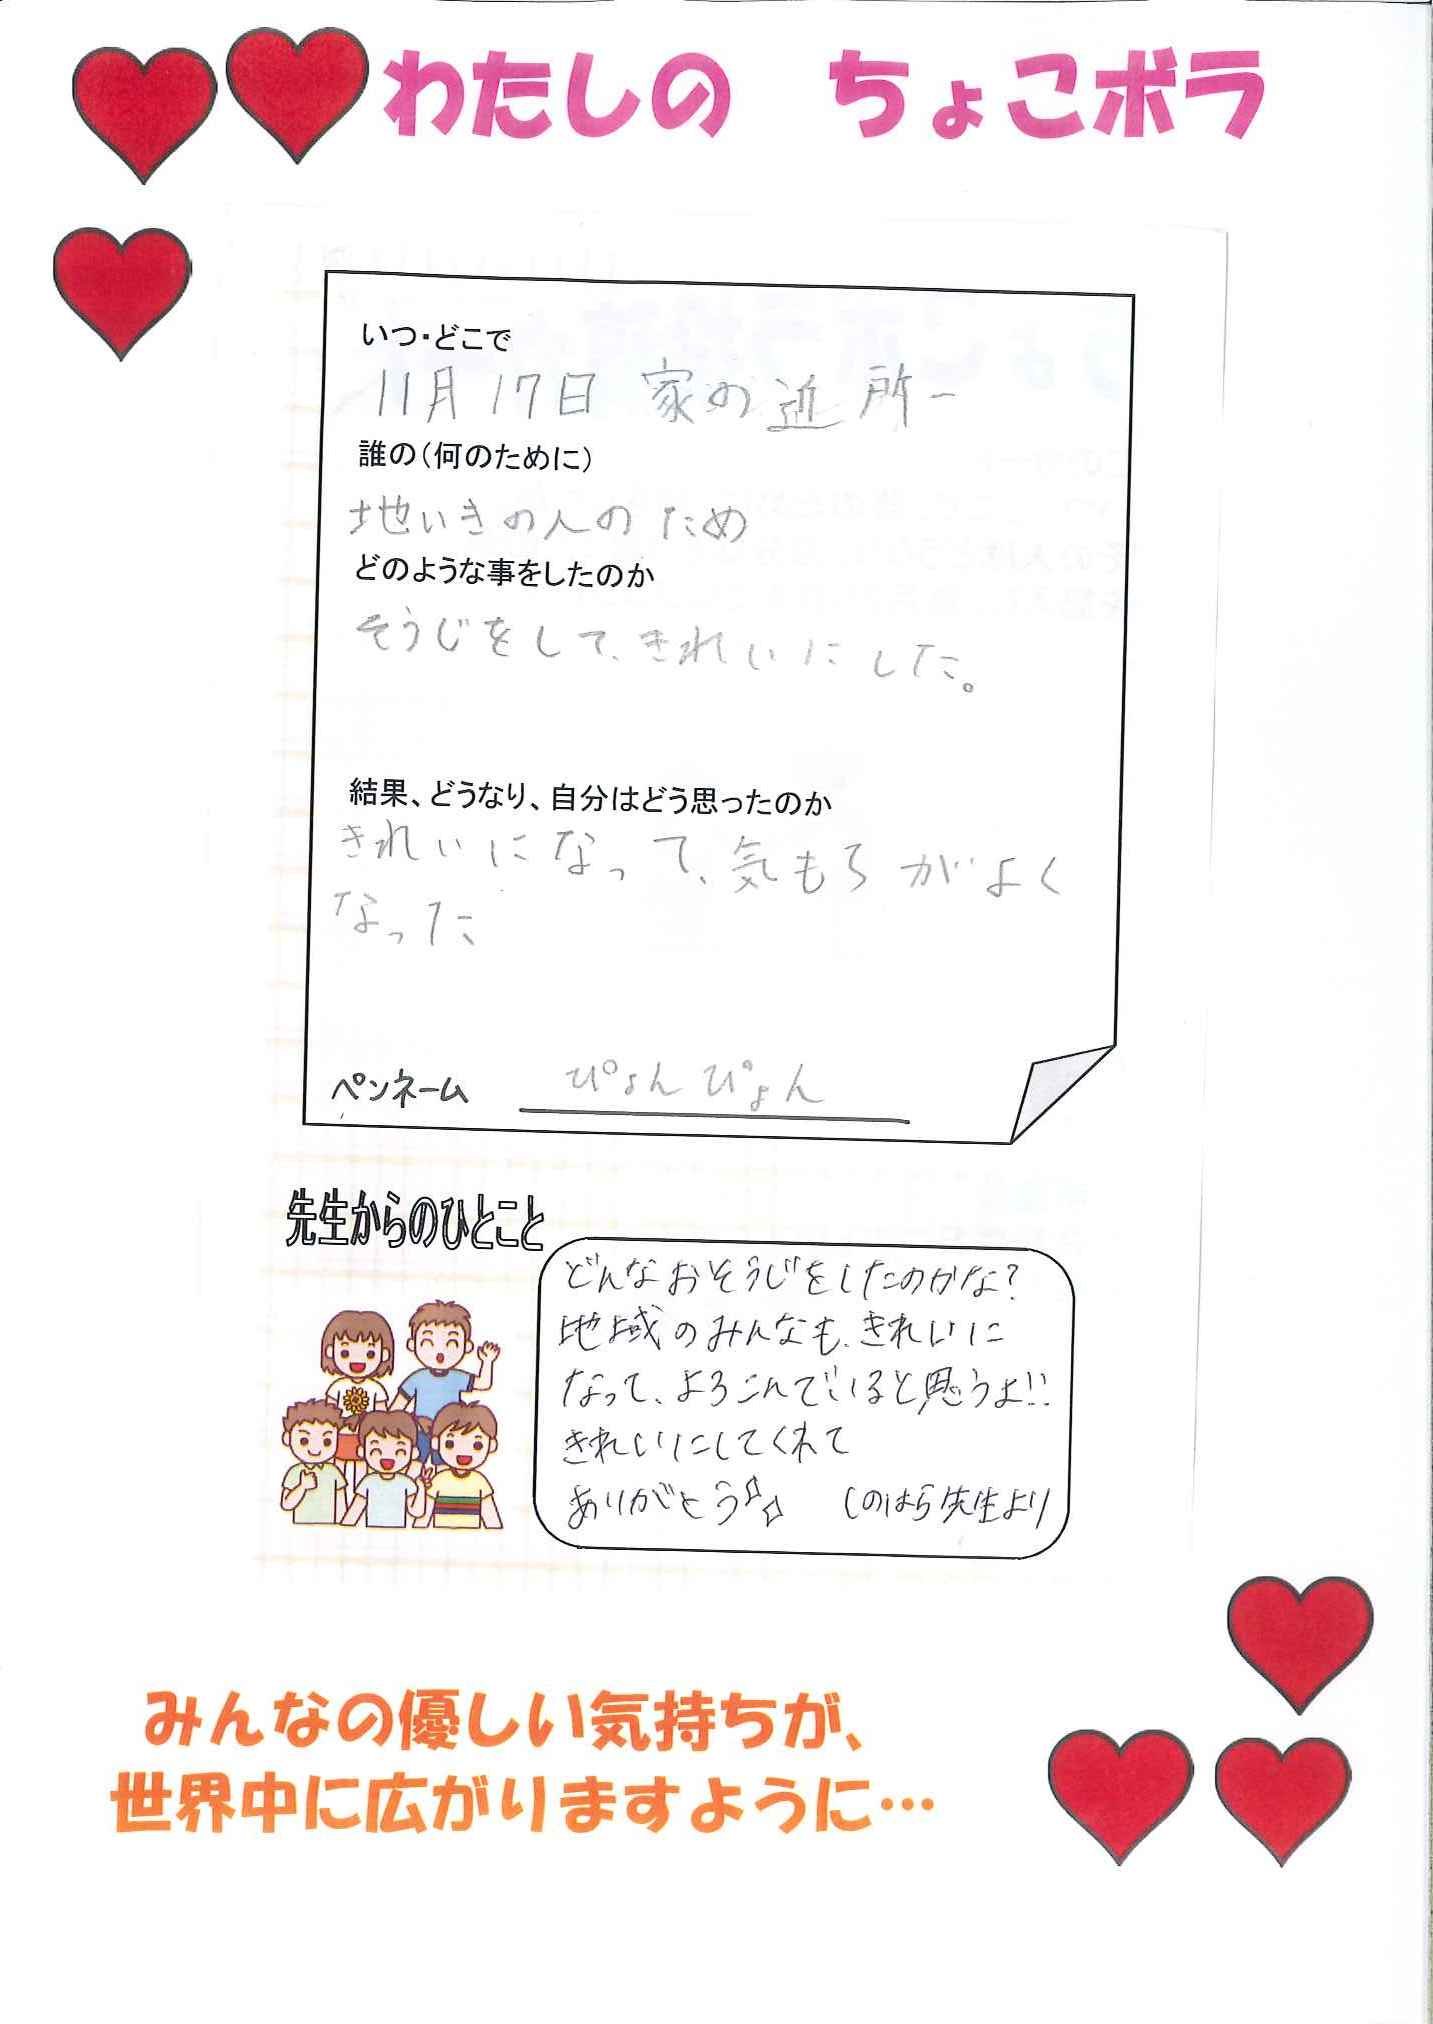 わたしの　ちょこボラ
いつ・どこで
11月17日 家の近所
誰の（何のために）
地いきの人のため
どのような事をしたのか
そうじをして、きれいにした。
結果、どうなり、自分はどう思ったのか
きれいになって、気もちがよく
なった
ペンネーム ぴょんぴょん
先生からのひとこと
どんなおそうじをしたのかな？
地域のみんなも、きれいに
なって、よろこんでいると思うよ!!
きれいにしてくれて
ありがとう☆☆ しのはら先生より
みんなの優しい気持ちが、
世界中に広がりますように…